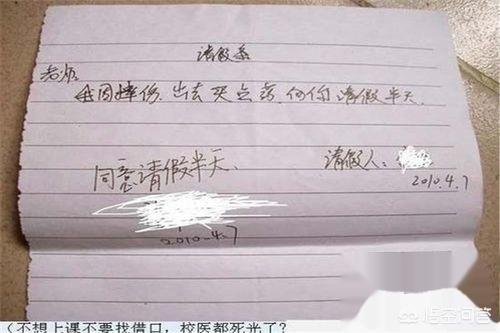 请假条
老师:
我因摔伤,出去买点药,向你请假半天.
请假人:
2010.4.7
同意请假半天.
2010.4.7
(不想上课不要找借口，校医都死光了?
悟空问答